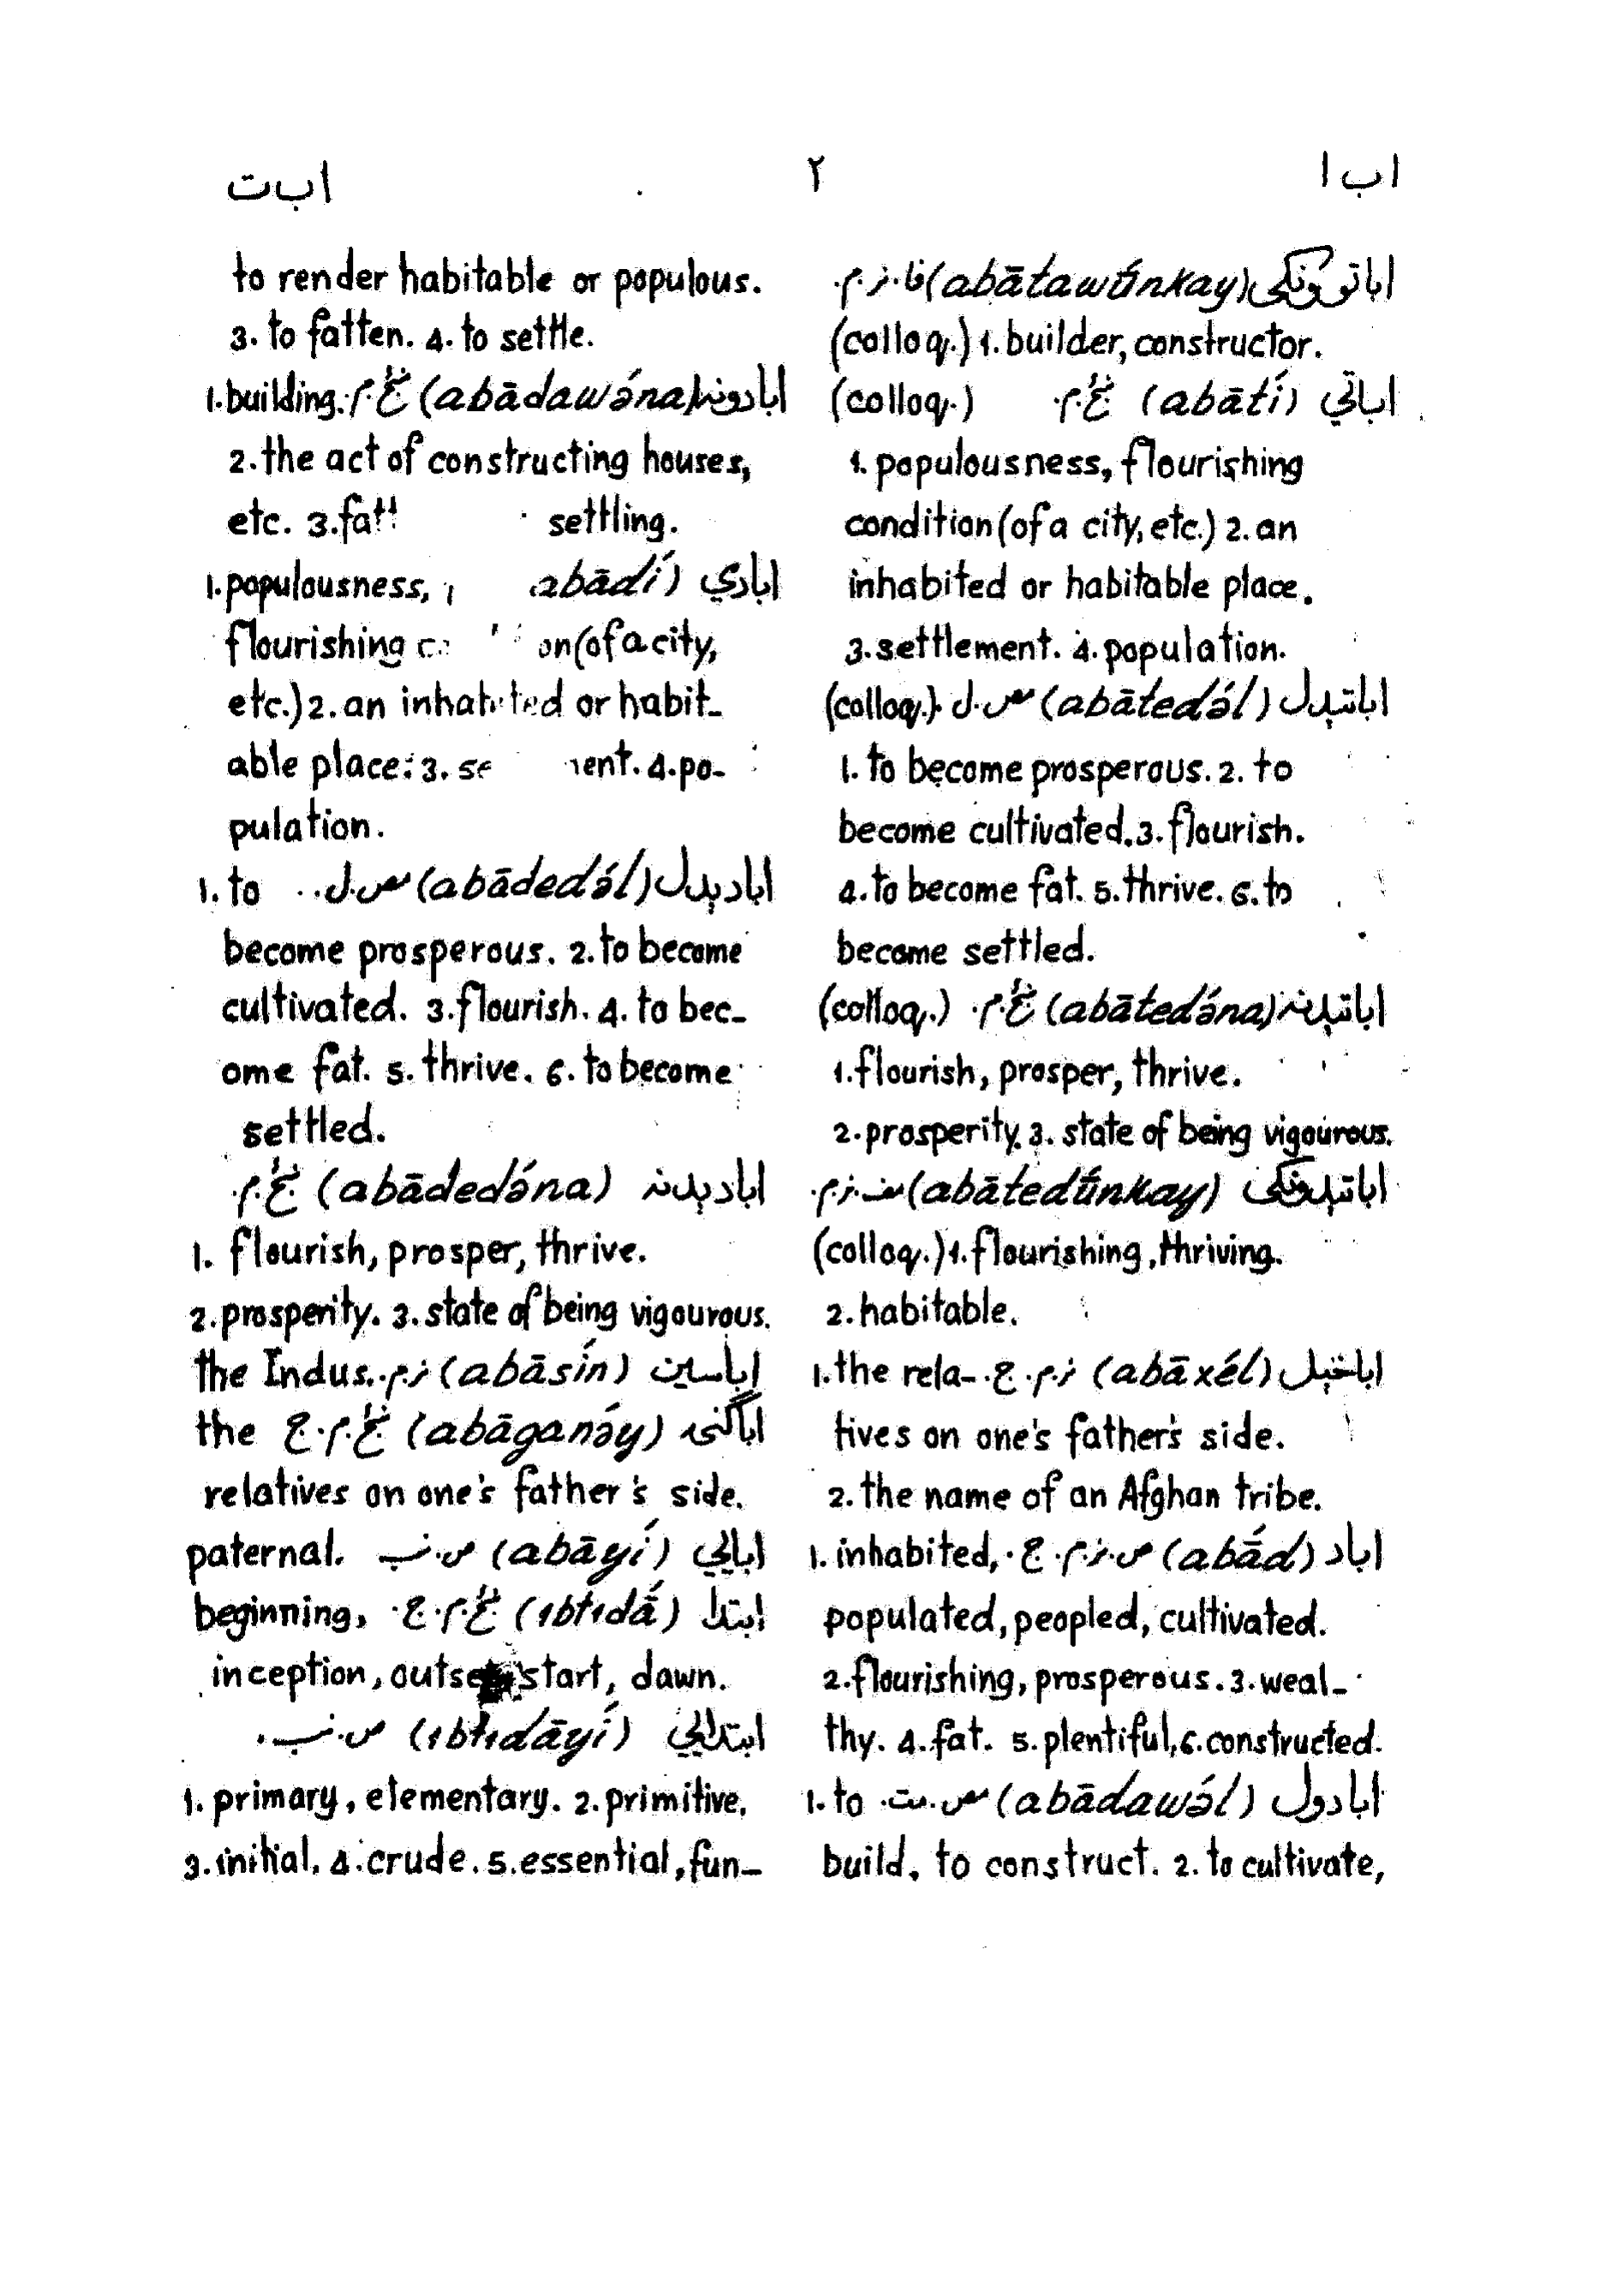 ابا ۲ ابت
اباتوونکی (abātawū́nkay) فا. ن. م.
(colloq.) 1. builder, constructor.
اباتي (abātí) ښځ. م. (colloq.)
1. populousness, flourishing
condition (of a city, etc.) 2. an
inhabited or habitable place.
3. settlement. 4. population.
اباتېدل (abātedə́l) مص. ل. (colloq.)
1. to become prosperous. 2. to
become cultivated. 3. flourish.
4. to become fat. 5. thrive. 6. to
become settled.
اباتېدنه (abātedə́na) ښځ. م. (colloq.)
1. flourish, prosper, thrive.
2. prosperity. 3. state of being vigourous.
اباتېدونکی (abātedū́nkay) مف. ن. م.
(colloq.) 1. flourishing, thriving.
2. habitable.
اباخېل (abāxél) ن. م. ج. 1. the rela-
tives on one's father's side.
2. the name of an Afghan tribe.
اباد (abā́d) ص. ن. م. ج. 1. inhabited,
populated, peopled, cultivated.
2. flourishing, prosperous. 3. weal-
thy. 4. fat. 5. plentiful, 6. constructed.
ابادول (abādawə́l) مص. مت. 1. to
build, to construct. 2. to cultivate,
to render habitable or populous.
3. to fatten. 4. to settle.
ابادونه (abādawə́na) ښځ. م. 1. building.
2. the act of constructing houses,
etc. 3. settling.
ابادي (abādí) 1. populousness,
flourishing (of a city,
etc.) 2. an inhabited or habit-
able place: 3. 4. po-
pulation.
ابادېدل (abādedə́l) مص. ل. 1. to
become prosperous. 2. to become
cultivated. 3. flourish. 4. to bec-
ome fat. 5. thrive. 6. to become
settled.
ابادېدنه (abādedə́na) ښځ. م.
1. flourish, prosper, thrive.
2. prosperity. 3. state of being vigourous.
اباسين (abāsín) ن. م. the Indus.
اباګنۍ (abāganə́y) ښځ. م. ج. the
relatives on one's father's side.
ابايي (abāyí) ص. نب. paternal.
ابتدا (ıbtıdā́) ښځ. م. ج. beginning,
inception, outset, start, dawn.
ابتدايي (ıbtıdāyí) ص. نب.
1. primary, elementary. 2. primitive.
3. initial. 4. crude. 5. essential, fun-